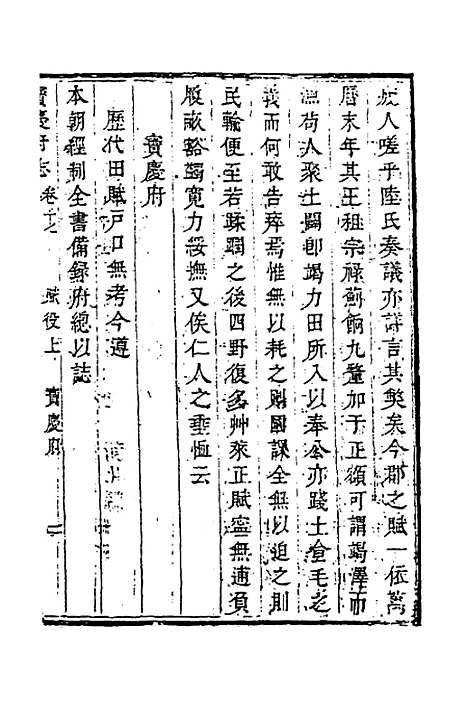 於人嗟乎陸氏奏議亦詳言其獘矣今郡之賦一依萬
曆末年其王祖宗祿薊餉九釐加于正額可謂竭澤而
無苟人聚土闢即竭力田所入以奉公亦踐土食毛之
義而何敢告瘁焉惟無以耗之則國課全無以迫之則
民輸便至若蹂躪之後四野復多艸萊正賦寧無逋負
豁蠲寛力綏撫又俟仁人之垂恤云
寶慶府
歷代田賦戸口無考今遵
本朝經制全書備録府總以誌
寶慶府志 卷十 賦役上 寶慶府 二